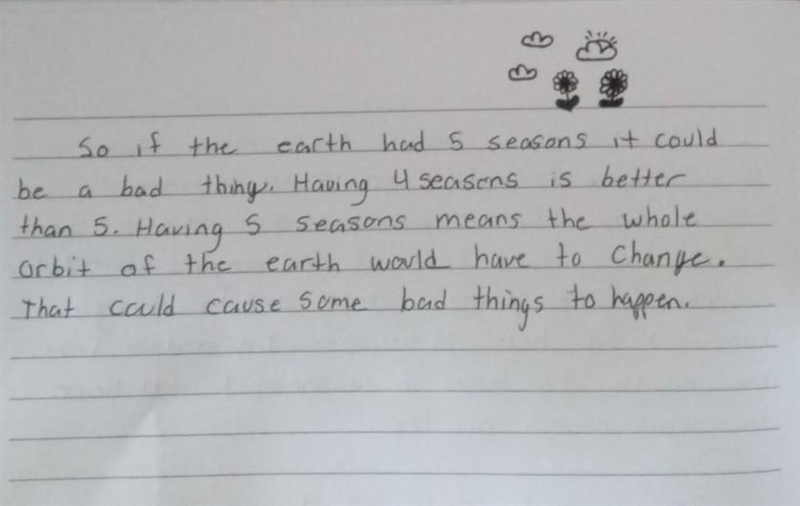 So if the earth had 5 seasons it could
be a bad thing. Having 4 seasons is better
than 5. Having 5 seasons means the whole
orbit of the earth would have to change.
That could cause some bad things to happen.